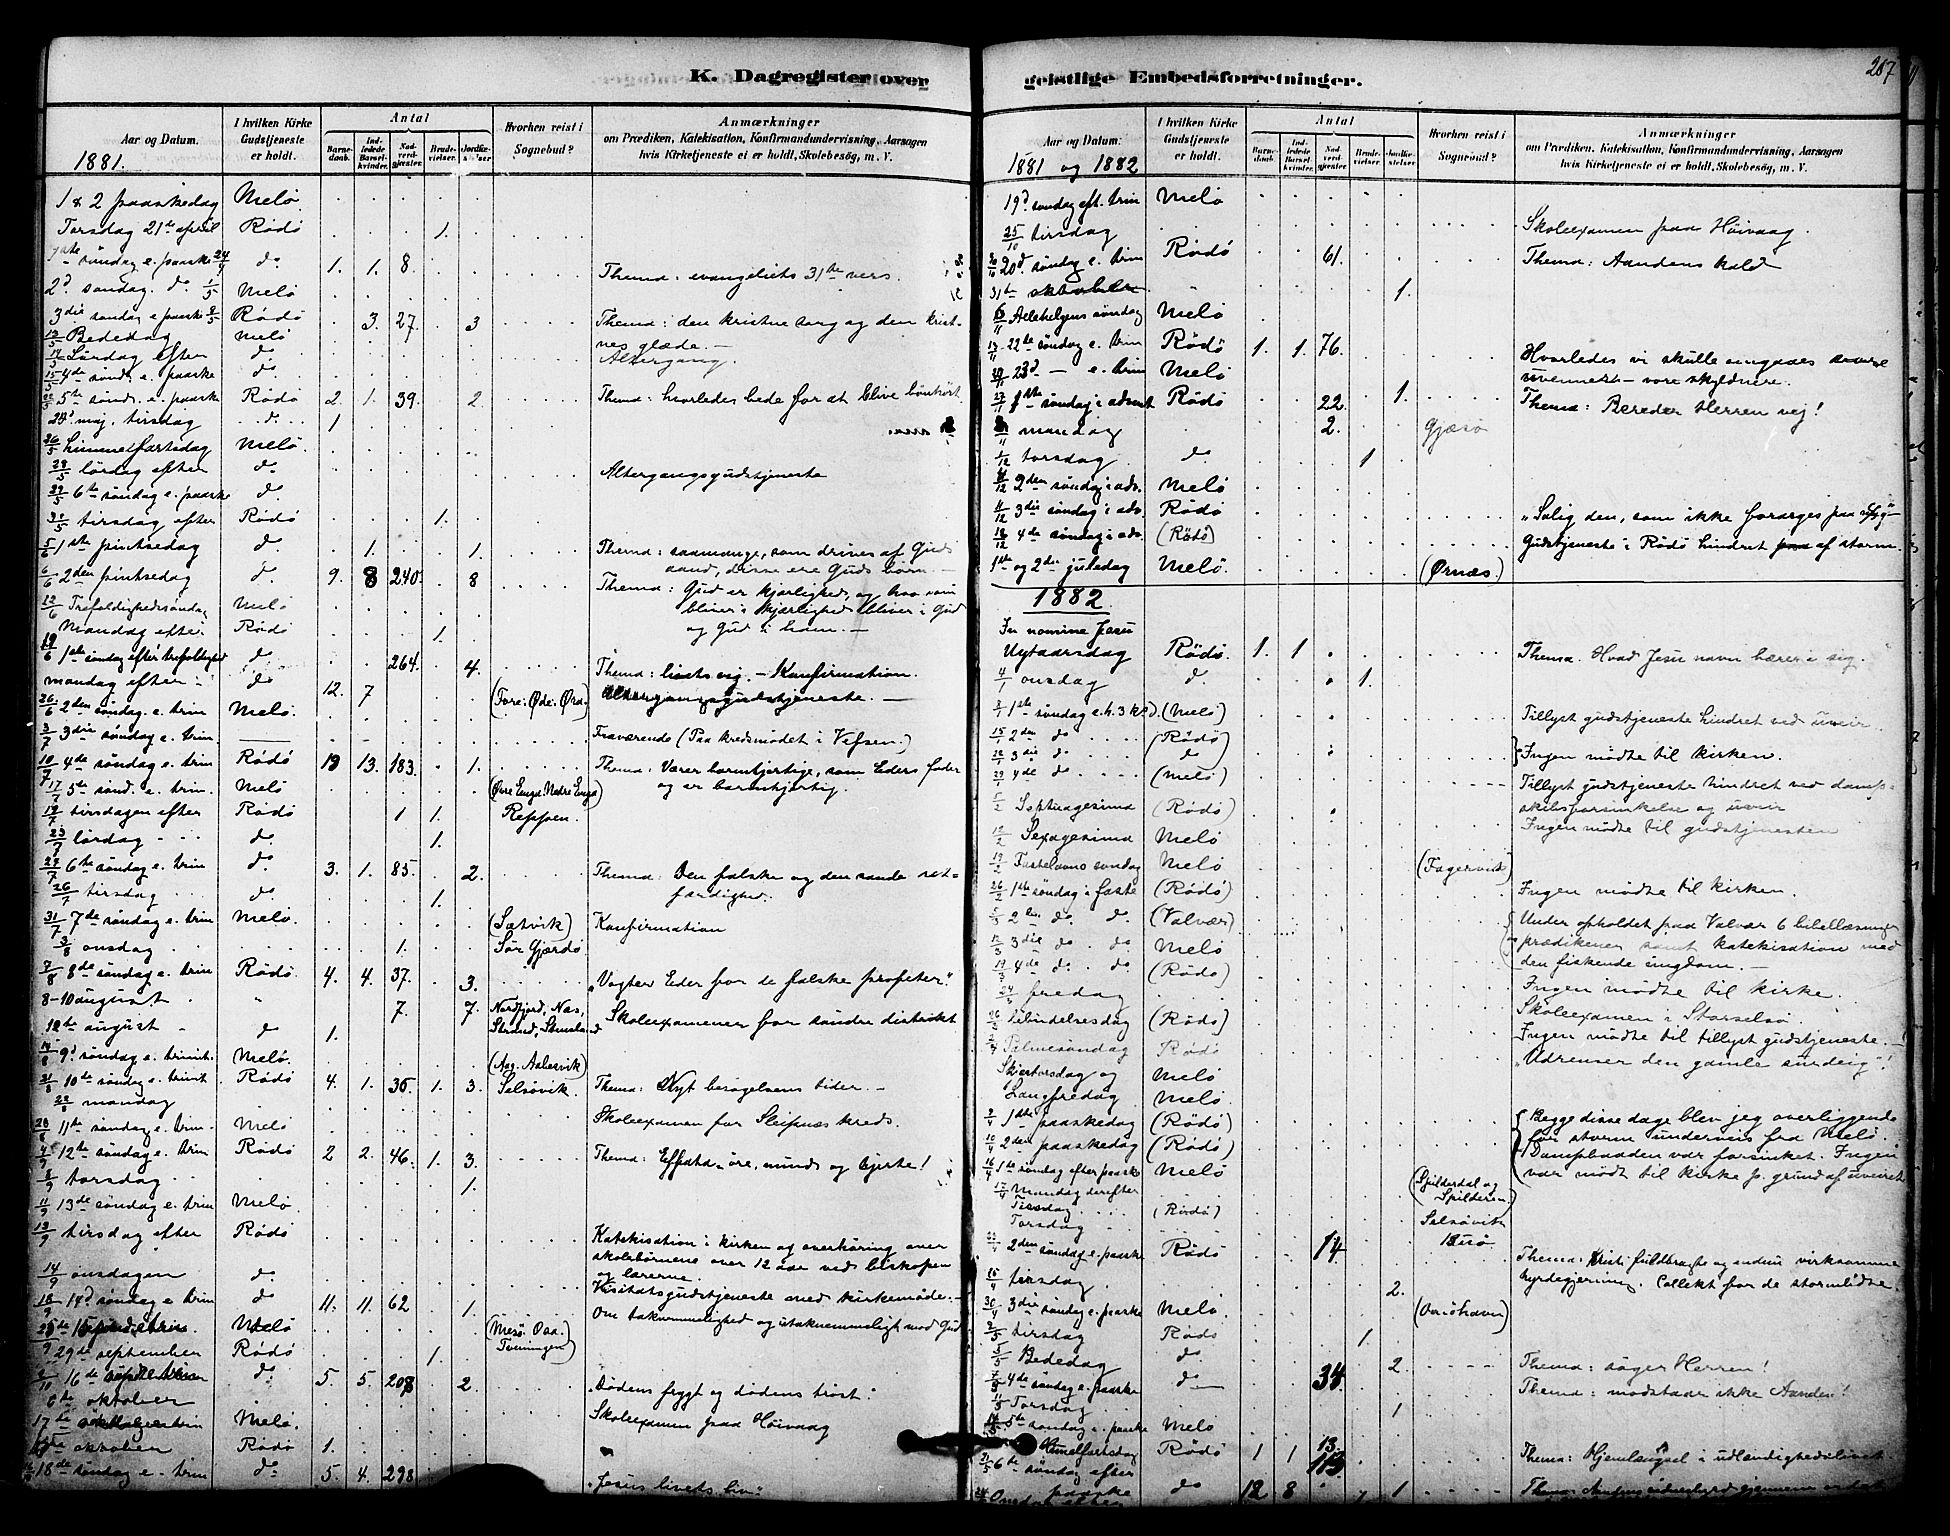 K. Dagregister over
Aar og Datum.
I hvilken Kirke Gudstjeneste er holdt.
Antal
Barnedaab.
Indledede Barselkvinder.
Nadverdgjester.
Brudevielser.
Jordfæstelser.
Hvorhen reist i Sognebud?
Anmærkninger
om Prædiken, Katekisation, Konfirmandundervisning, Aarsagen
hvis Kirketjeneste ei er holdt, Skolebesøg, m. V.
1881.
1 & 2 paaskedag Melö.
Torsdag 21de april Rödö 1.
1ste söndag e. paaske 24/4 do 1. 1. 8. Thema: evangeliets 31te vers.
2d söndag do 1/5 Melö
3die söndag e. paaske 8/5 Rödö 3. 27. 3 Thema: den kristne sorg og den krist-
nes glæde.
13/5 Bededag Melö
Lördag efter do Altergang.
15/5 4de sönd. e. paaske do
22/5 5te sönd. e. paaske Rödö 2 1. 39. 2. Thema: hvorledes bede for at blive bönhört
maj. tirsdag do 1
26/5 himmelfartsdag Melö.
28/5 lördag efter do Altergangsgudstjeneste
29/5 6te söndag e. paaske do
tirsdag efter Rödö 1.
5/6 1ste pintsedag do 1. 1. Thema: saamange, som drives af Guds
aand, disse ere Guds börn.
6/6 2den pintsedag do 9. 8 240. 8 Thema: Gud er kjærlighed, og hvo som
bliver i kjærlighed bliver i Gud
og Gud i ham.
12/6 Trefoldighedssöndag Melö
Mandag efter. Rödö 1.
19/6 1ste söndag efter trefoldighed do 264. 4. Thema: livets vej. Konfirmation.
mandag efter do 12. 7 Altergangsgudstjeneste.
26/6 2den söndag e. trin Melö. (Fore: Øde: Øra.)
3/7 3die söndag e. trin. Fraværende (Paa kredsmödet i Vefsen.)
10/7 4de söndag e. trin Rödö 13 13. 183. 1. Thema: Værer barmhjertige, som Eders fader
og er barmhjertig.
17/7 5te sönd. e. trin. Melö (Øvre Enga. Nedre Enga)
19/7 tirsdagen efter Rödö 1 1. Reppen.
23/7 lördag do 1.
6te söndag e. trin do 3. 1. 85. 2. Thema: Den falske og den sande ret-
færdighed.
26/7 tirsdag do 1.
31/7 7de söndag e. trin Melö. (Sætvik) Konfirmation
3/8 onsdag 1. Sör Gjærdö
7/8 8de söndag e. trin Rödö. 4. 4. 37. 3. „Vogter Eder for de falske profeter".
8-10 august 7. 7. Nordfjord, Næs, Skoleexamener for söndre distrikt
12te august do 1.
14/8 9d söndag e. trinit. Melö. (Aag. Aalesvik)
21/8 10de söndag e. trinit Rödö 4. 1. 36. 1. 3. Selsövik. Thema: Nyt besøgelsens tider.
22/8 mandag Skoleexamen for Sleipnæs kreds.
28/8 11te söndag e. trin. Melö
4/9 12te söndag e. trin Rödö 2 2. 46. 1. 3. Thema: Effata - öre, mund og hjerte!
8/9 torsdag 1.
11/9 13de söndag e. trin Melö.
13/9 tirsdag efter Rödö Katekisation i kirken og overhöring over
skolebörnene over 12 aar ved biskopen
og lærerne.
14/9 onsdagen do Visitatsgudstjeneste med kirkemöde.
18/9 14d söndag e. trin do 11. 11. 62 1. Om taknemmelighed og utaknemmeligh mod Gud
Melö (Mesö. Oaa. Teeningen)
29de september Rödö 1.
2/10 16de do 5. 5. 208 2. „Dödens frygt og dödens tröst".
6te oktober Skoleexamen paa Höivaag
17te Melö.
oktober Rödö 1.
18de söndag e. trin do 5. 4. 298 „Jesus livets liv".
geistlige Embedsforretninger.
207
Aar og Datum:
I hvilken Kirke Gudstjeneste er holdt.
Antal
Barnedaab.
Indledede Barselkvinder.
Nadverdgjester.
Brudevielser.
Jordfæstelser.
Hvorhen reist i Sognebud?
Anmærkninger
om Prædiken, Katekisation, Konfirmandundervisning, Aarsagen
hvis Kirketjeneste ei er holdt, Skolebesøg, m. V.
1881 og 1882
19d söndag eft. trin Melö
25/10 tirsdag Skoleexamen paa Höivaag.
20d söndag e. trin Rödö 61. Thema: Aandens kald
31te oktober 1.
6/11 Allehelgens söndag Melö
13/11 22de söndag e. trin Rödö 1. 1. 76. Hvorledes vi skulle omgaaes
uvenner - vore skyldnere.
23d e. trin Melö
27/11 1ste söndag i advent Rödö 22. 1. Thema: Bereder Herren vej!
mandag 2. Gjæsö
1/12 torsdag do 1
4/12 2den söndag i adv. Melö
11/12 3die söndag i adv. Rödö „Salig den, som ikke forarges paa
18/12 4de söndag i adv. (Rödö) Gudstjeneste i Rödö hindret af storm.
1ste og 2den juledag Melö. (Ørnæs.)
1882.
In nomine Jesu
Nytaarsdag Rödö. 1. 1 Thema. Hvad Jesu navn bærer i sig.
4/1 onsdag do 1.
1ste söndag e. h. 3 k.d. (Melö) Tillyst gudstjeneste hindret ved uveir
15/1 2den do (Rödö)
3die do do Ingen mödte til kirken.
29/1 4de do (Melö) Tillyst gudstjeneste hindret ved damp-
skibsforsinkelse og uveir
5/2 Septuagesima (Rödö) Ingen mödte til gudstjenesten
12/2 Sexagesima Melö
19/2 Fastelavns söndag Melö (Fagervik)
26/2 1ste söndag i faste (Rödö) Ingen mödte til kirken.
5/3 2den do do (Valvær) Under opholdet paa Valvær 6 bibellæsninger
12/3 3die do do Melö prædikener samt katekisation med
den fiskende ungdom.
19/3 4de do do (Rödö) Ingen mödte til kirke.
24/3 fredag Skoleexamen i Storselsö.
26/3 bebudelsesdag (Rödö) Ingen mödte til tillyst gudstjeneste.
2/4 Palmesöndag Rödö „Udrenser den gamle surdeig"!
Skjærtorsdag og Melö
Langfredag Melö.
9/4 1ste paaskedag (Rödö) Begge disse dage blev jeg overliggende
10/4 2den paaskedag (Rödö) for storm underveis fra Melö.
16/4 1ste söndag efter paaske Melö Dampbaaden var forsinket. Ingen
var mödt til kirke p. grund af uveiret
Mandag derefter (Spilderdal og Spilderen.)
Tirsdag (Rödö) Selsövik
Torsdag
23/4 2den söndag e. paaske Rödö 14. Thema: Kristi fuldbragte og endnu virksomme
hyrdegjerning. Collekt for de stormlidte.
tirsdag 2.
30/4 3die söndag e. paaske Melö
2/5 tirsdag Rödö 1
5/5 Bededag do 2. Thema: söger Herren!
7/5 4de söndag e. paaske do 34. Thema: modstaar ikke Aanden!
11/5 Torsdag 1
14/5 5te söndag e. paaske Melö
Himelfartsdag Rödö 1 1 13. Thema: Hjemlængsel i udlændighedslivet
6te söndag efter
paaske do 12 8 1